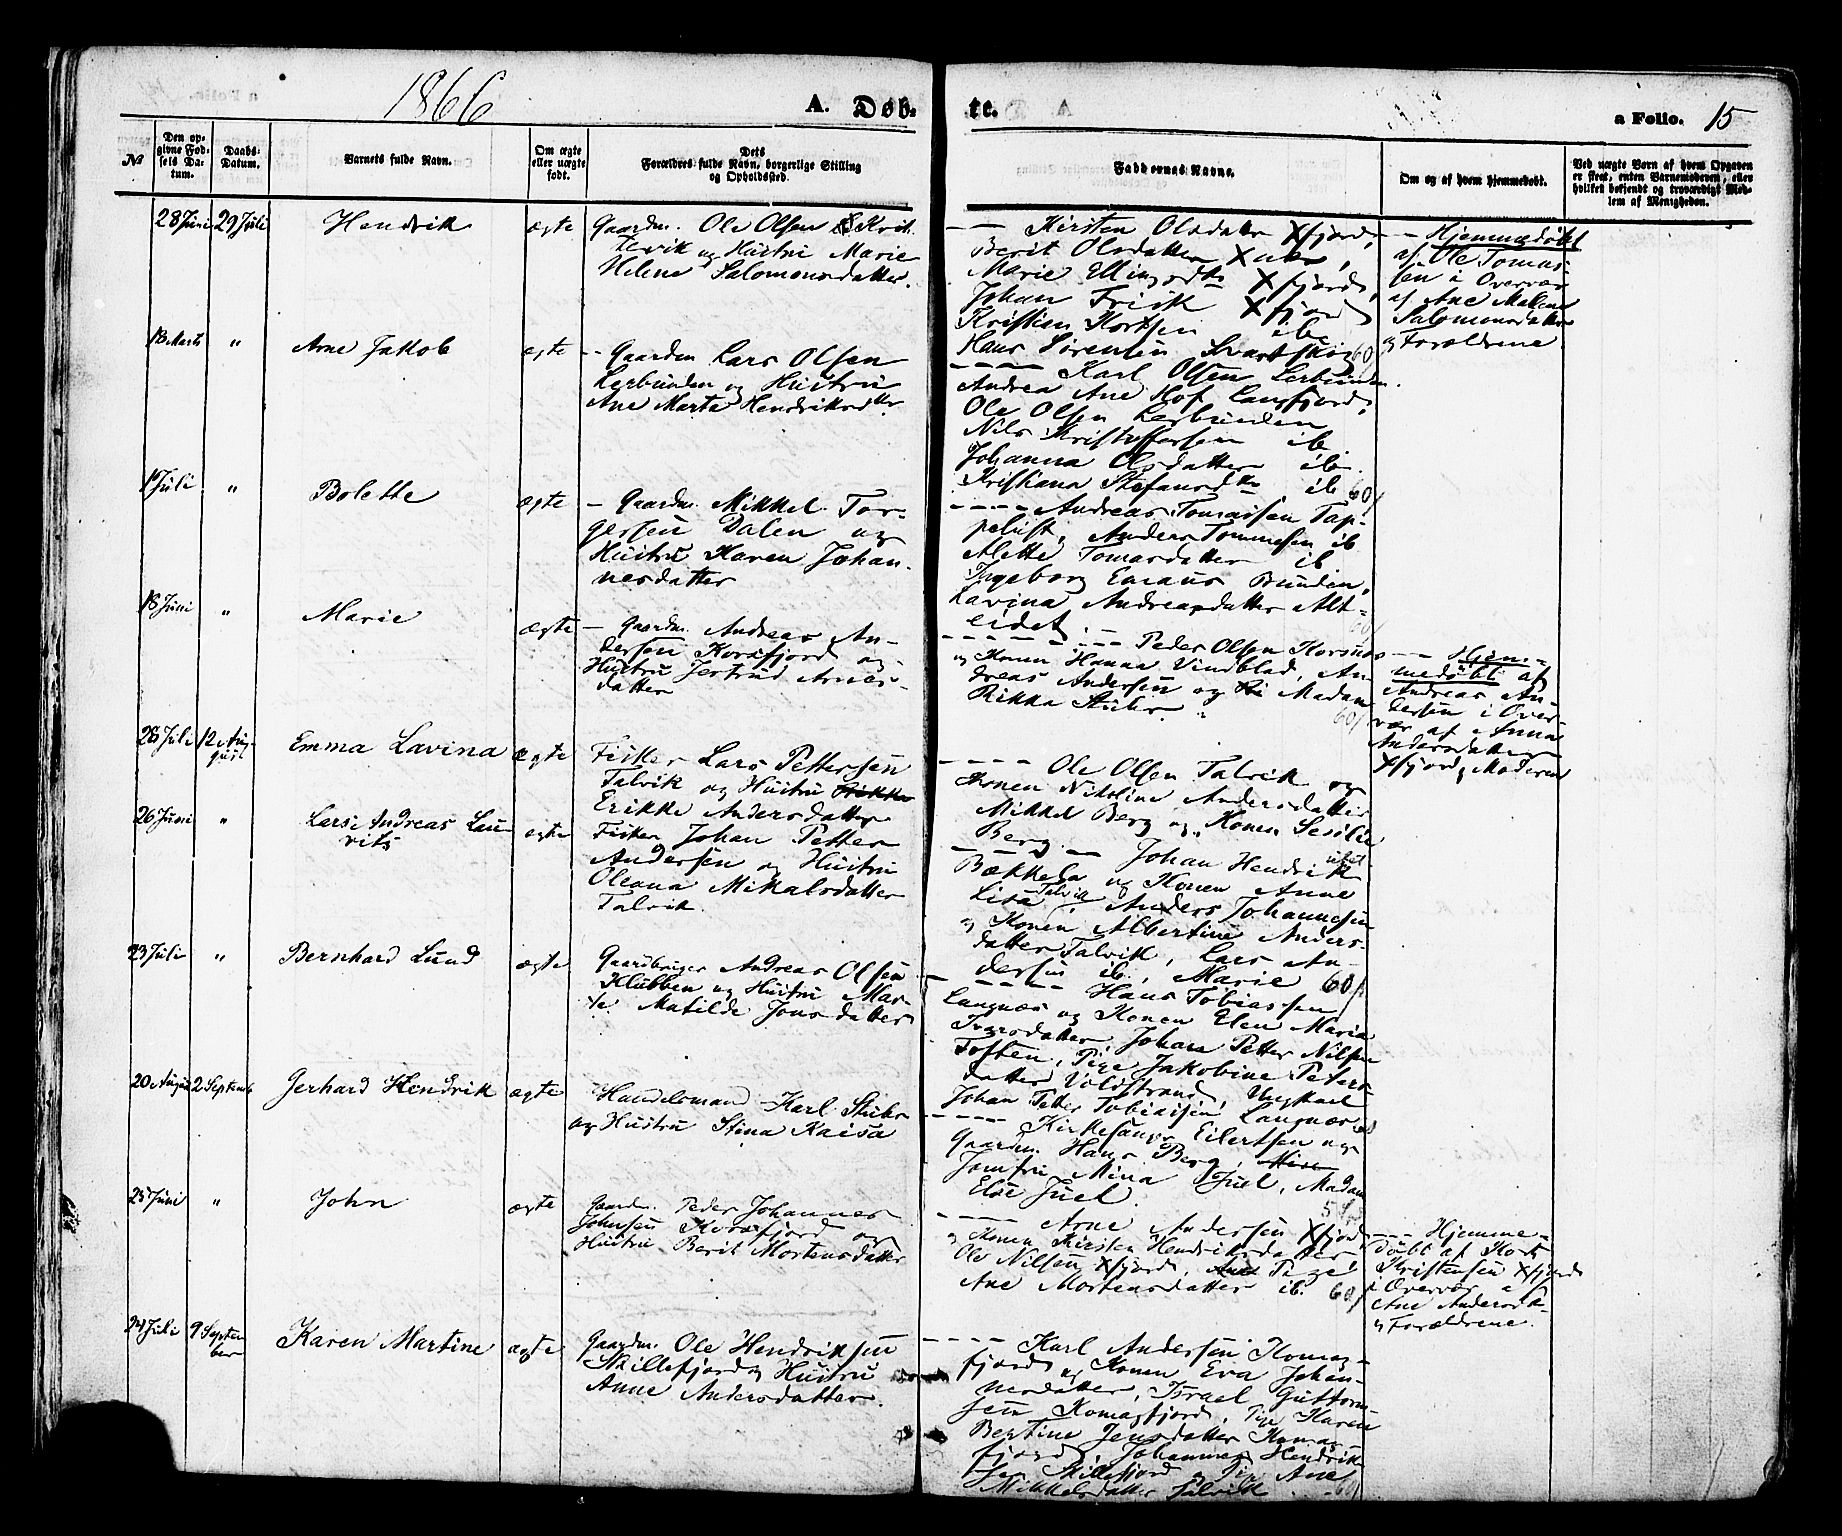 1866
A. Döb-
te.
a Folio. 15
№
Den op-
givne Fød-
sels Da-
tum.
Daabs-
Datum.
Barnets fulde Navn.
Om ægte
eller uægte
født.
Dets
Forældres fulde Navn, borgerlige Stilling
og Opholdssted.
Faddernes Navne.
Om og af hvem hjemmedøbt.
Ved uægte Børn af hvem Opgaven
er skeet, enten Barnemoderen, eller
hvilket bekjendt og troværdigt Med-
lem af Menigheden.
28 Juni 29 Juli
Hendrik
ægte
Gaardm. Ole Olsen
og Hustru Marie
Helene Salomonsdatter.
Kirsten Olsdatter Xfjord,
Berit Olsdatter
Marie Ellingsdtr Xfjord,
Johan Frisk Xfjord
Kristian Kortsen ib
Hans Sörensen 60
Hjemmedöbt
af Ole Tomas-
sen i Overvær
af Ane Malena
Salomonsdatter
og Forældrene.
18 Marts "
Arne Jakob
ægte
- Gaardm Lars Olsen
Lerbunden og Hustru
Ane Marta Hendriksdtr.
Karl Olsen Lerbunden
Andrea Ane Hof Langfjord,
Ole Olsen Lerbunden
Nils Kristoffersen ib
Johanna Olsdatter ib.
Kristiana Stefansdtr ib 60/
1 Juli "
Bolette
ægte
- Gaardm. Mikkel Tor-
gersen Dalen og
Hustru Karen Johan-
nesdatter
Andreas Tomassen Tap-
peluft, Anders Tommesen ib
Alette Tomasdatter ib
Ingeborg Emaus Bunden,
Lavina Andreasdatter Alt-
eidet.
18 Juni "
Marie
ægte
- Gaardm. Andreas An-
dersen Korsfjord og
Hustru Jertrud Arnes-
datter
Peder Olsen Korsnæs
og Konen Hanna Vindblad, An-
dreas Andersen og Madam
Rikka Stuhr. 60/
Hjem-
medöbt af
Andreas An-
dersen i Over-
vær af Anna
Andersdatter
Xfjord, Moderen
28 Juli 12 Au-
gust
Emma Lavina
ægte
Fisker Lars Pettersen
Talvik og Hustru
Erikke Andersdatter
Ole Olsen Talvik og
Konen Nikoline Andersdatter
Mikkel Berg og Konen Sesilie
Berg.
26 Juni "
Lars Andreas Lau-
rits
ægte
Fisker Johan Petter
Andersen og Hustru
Oleana Mikalsdatter
Talvik.
Johan Hendrik
Bækkela og Konen Anne
Lisa Talvik, Anders Johannesen
og Konen Albertine Anders-
datter Talvik, Lars An-
dersen ib, Marie 60/
23 Juli "
Bernhard Lund
ægte
Gaardbruger Andreas Olsen
Klubben og Hustru Mar-
te Matilde Jonsdatter
Hans Tobiassen
Langnæs og Konen Elen Maria
Ivarsdatter, Johan Petter Nilsen
Toften, Pige Jakobine Peters-
datter Voldstrand, Ungkarl
Johan Petter Tobiassen Langnæs
20 August 2 Septemb
Gerhard Hendrik
ægte
Handelsmand Karl Stuhr
og Hustru Stina Kaisa
Kirkesanger Eilertsen og
Gaardm. Hans Berg,
Jomfru Mina Juel, Madam
Elsie Juel.
25 Juni "
John
ægte
Gaardm. Peder Johannes
Johnsen Korsfjord og
Hustru Berit Mortensdatter
Arne Andersen Xfjord
og Konen Kirsten Hendriksdatter
Ole Nilsen Xfjord, Pige
Ane Mortensdatter ib. 60/
Hjemme-
döbt af Kort
Kristensen Xfjord
i Overvær af
Ane Andersdtr
og Forældrene.
24 Juli 9 Septem
ber
Karen Martine
ægte
Gaardm. Ole Hendriksen
Skillefjord og Hustru
Anne Andersdatter.
Karl Andersen Komag-
fjord og Konen Eva Johan-
nesdatter, Israel Guttorm-
sen Komagfjord, Pige Karen
Bertine Jensdatter Komag-
fjord, Johannes Hendrik-
sen Skillefjord og Pige Ane
Mikkelsdatter Talvik. 60/